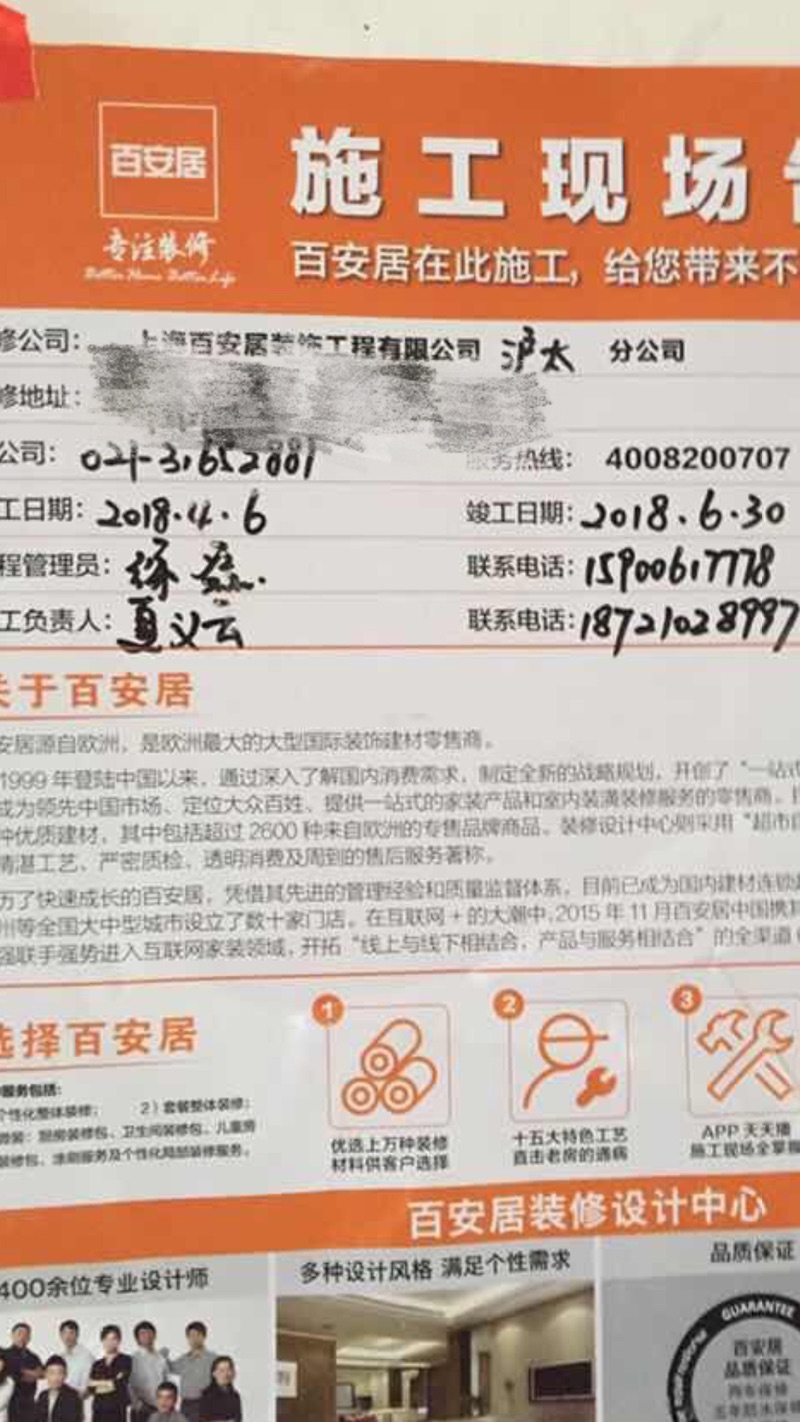 百安居
专注装修
Better Home Better Life
施工现场
百安居在此施工，给您带来不
修公司： 上海百安居装饰工程有限公司 沪太 分公司
修地址：
公司：021-31652881 服务热线：4008200707
工日期：2018.4.6 竣工日期：2018.6.30
程管理员：徐 联系电话：15900617778
工负责人：夏义云 联系电话：18721028997
关于百安居
安居源自欧洲，是欧洲最大的大型国际装饰建材零售商。
1999年登陆中国以来，通过深入了解国内消费需求，制定全新的战略规划，开创了“一站式
成为领先中国市场、定位大众百姓、提供一站式的家装产品和室内装潢装修服务的零售商。
种优质建材，其中包括超过2600种来自欧洲的专售品牌商品。装修设计中心则采用“超市
精湛工艺、严密质检、透明消费及周到的售后服务著称。
历了快速成长的百安居，凭借其先进的管理经验和质量监督体系，目前已成为国内建材连锁
州等全国大中型城市设立了数十家门店。在互联网+的大潮中，2015年11月百安居中国携
强联手强势进入互联网家装领域，开拓“线上与线下相结合，产品与服务相结合”的全渠道
选择百安居
服务包括：
个性化整体装修； 2）套餐整体装修；
厨房装修包、卫生间装修包、儿童房
装修包、涂刷服务及个性化局部装修服务。
1
优选上万种装修
材料供客户选择
2
十五大特色工艺
直击老房的通病
3
APP天天播
施工现场全掌握
百安居装修设计中心
400余位专业设计师
多种设计风格 满足个性需求
品质保证
GUARANTEE
百安居
品质保证
两年保修
五年防水保修